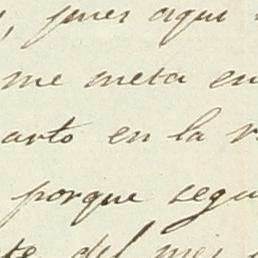 , pues aqui
me meta en
arto en la
porque segu
te del mes